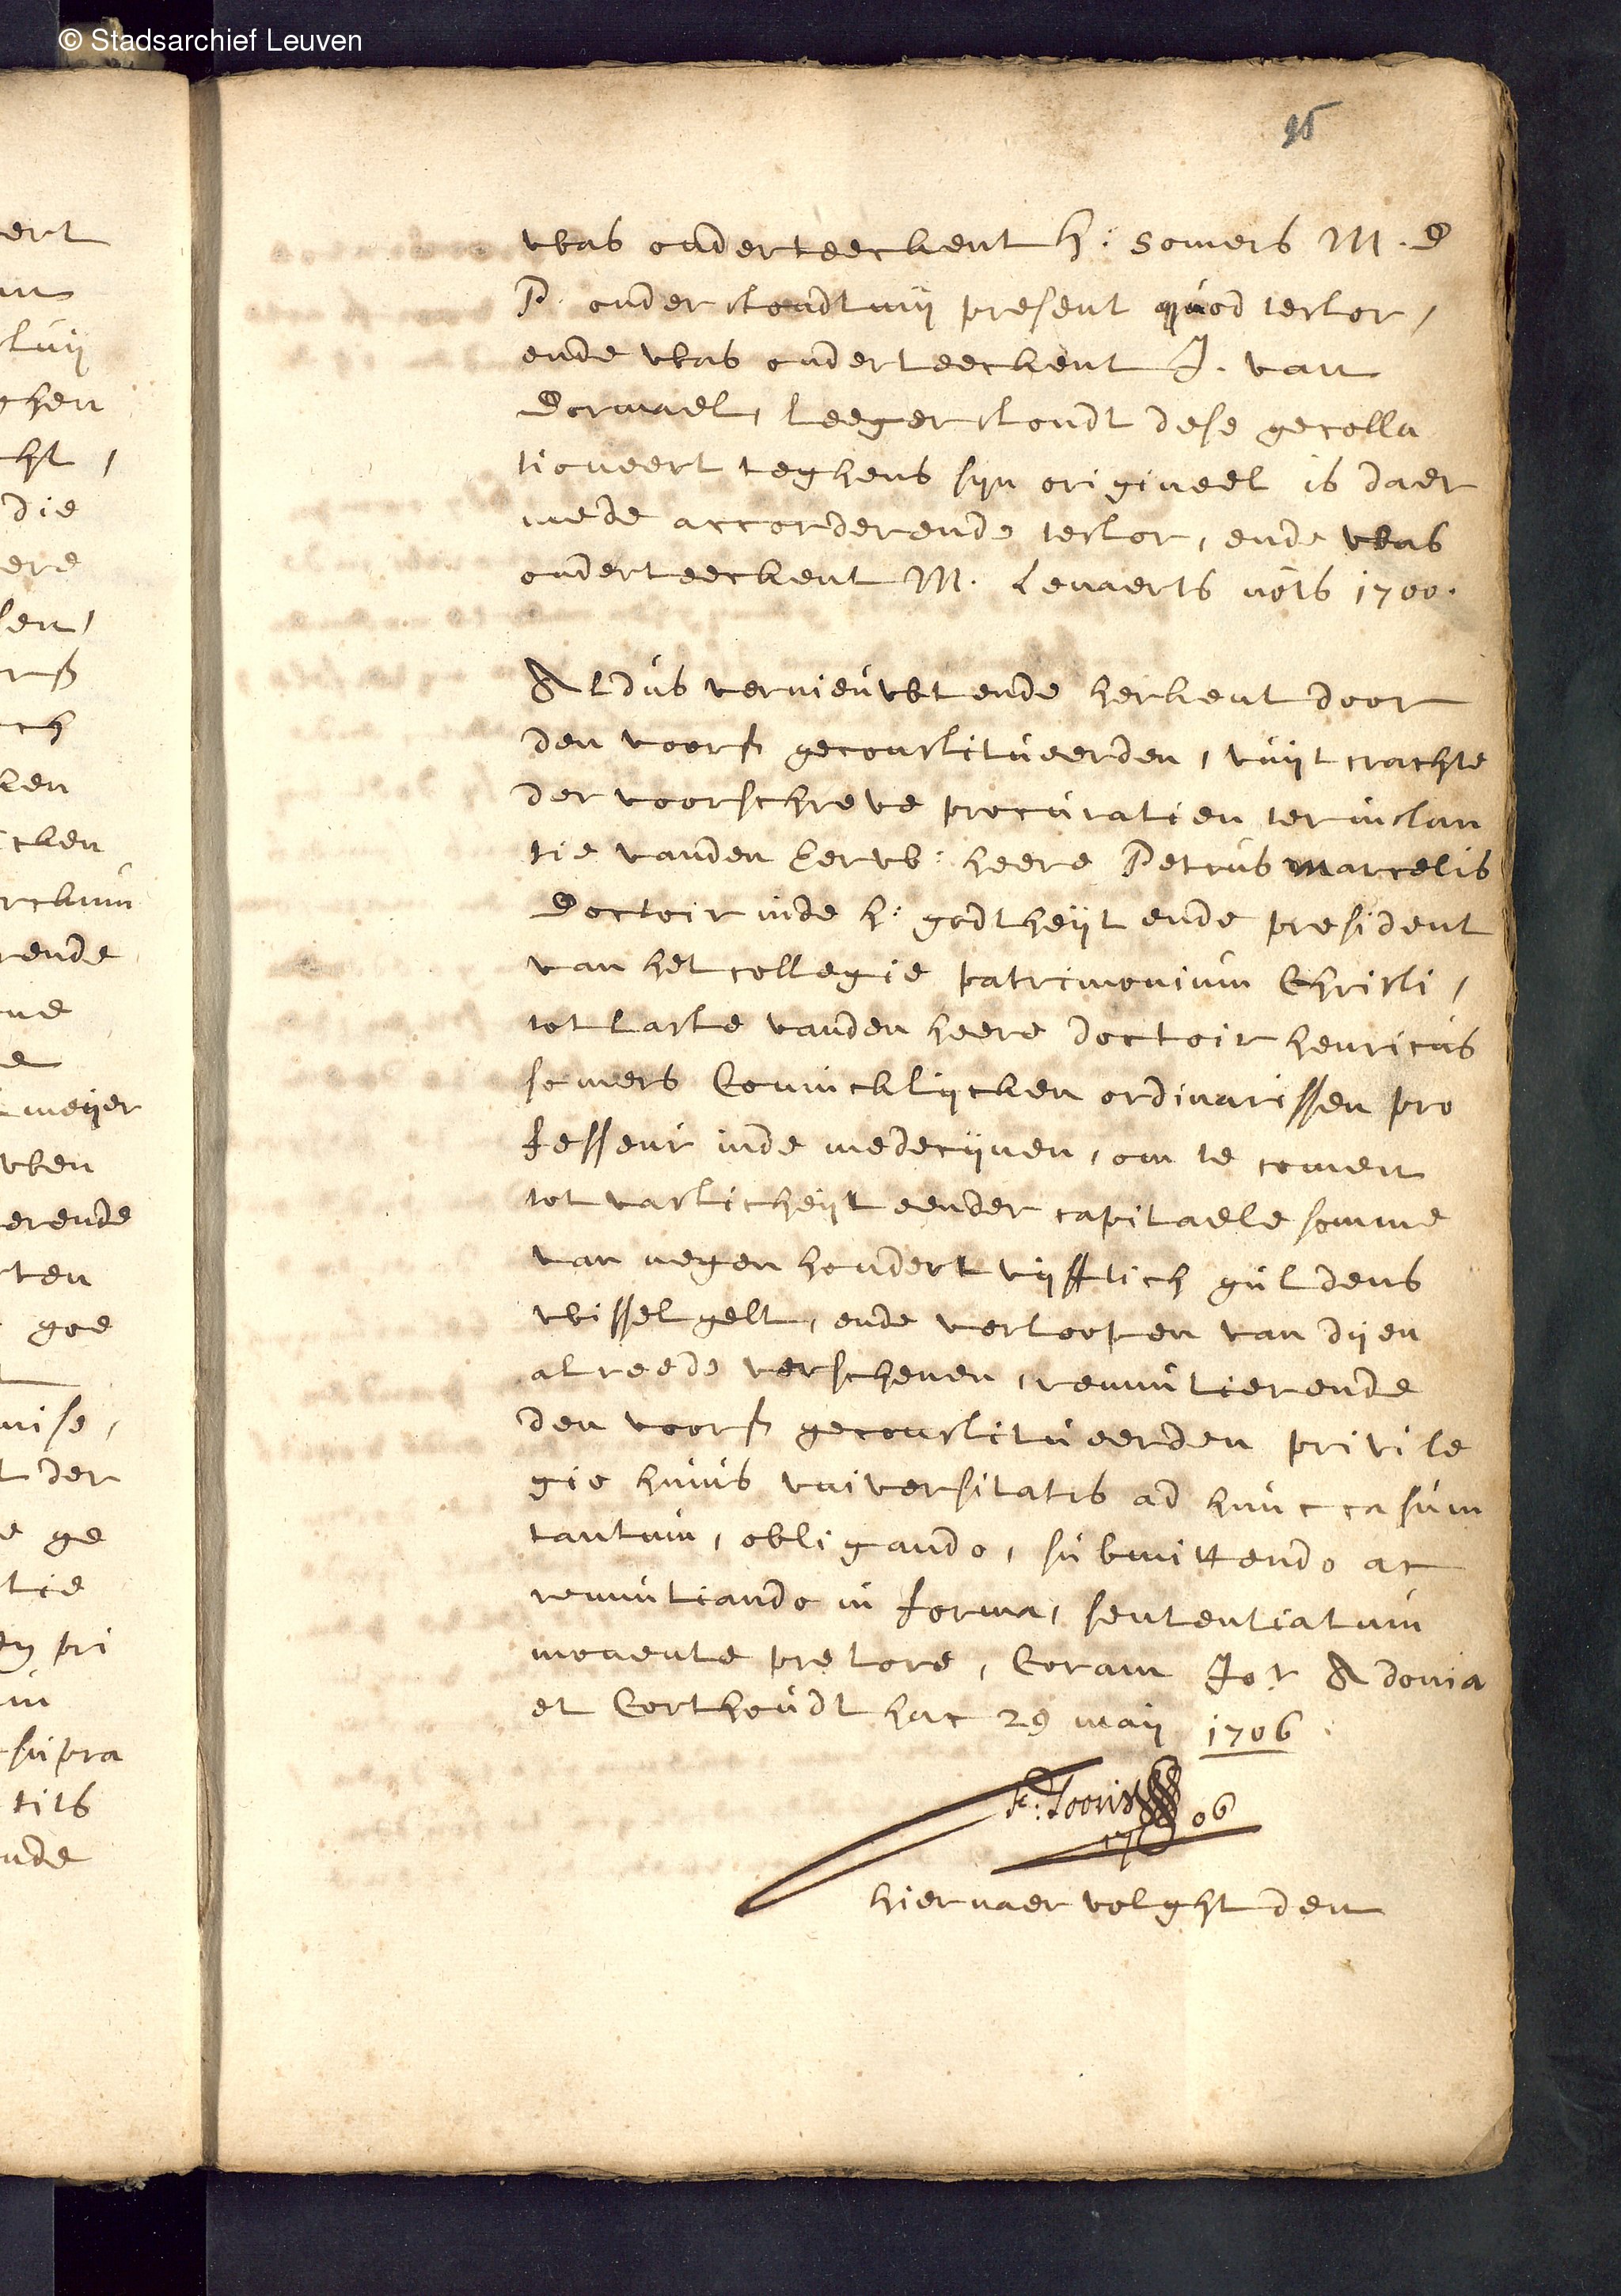 © Stadsarchief Leuven
95
ert
luij
ghen
ht,
die
ere
sen,
ch
ken
cken
rende
ne
meijer
wen
erende
ten
goe
der
ge
tie
pri
supra
tits
ende
was onderteeckent H: Somers M. D
P. onderstondt mij present quod testor,
ende was onderteeckent J. van
Dormael, leegerstondt dese gecolla
tioneert teghens syn origineel is daer
mede accorderende testor, ende was
onderteeckent M. Lenaerts nots 1700.
Aldus vernieuwt ende herkent door
den voors geconstitueerden, vuijt crachte
der voorschreve procuratien ter instan
tie vanden Eerw: heere Petrus Marcelis
Doctoir inde h: godtheijt ende president
van het collegie patrimonium Christi,
tot laste vanden heere doctoir henricus
somers Coninckliycken ordinarissen pro
fesseur inde medecijnen, om te comen
tot vastícheijt eender capitaele somme
van negen hondert vijfftich guldens
wisselgelt, ende verloopen van dijen
alreede verschenen, renuntierende
den voors geconstitueerden privile
gio huius universitatis ad hunc casum
tantum, obligando, submittendo ac
renuntiando in forma, sententiatum
monente pretore, Coram Jor Adonia
et Corthoudt hac 29 maij 1706.
1706
hier naer volght den